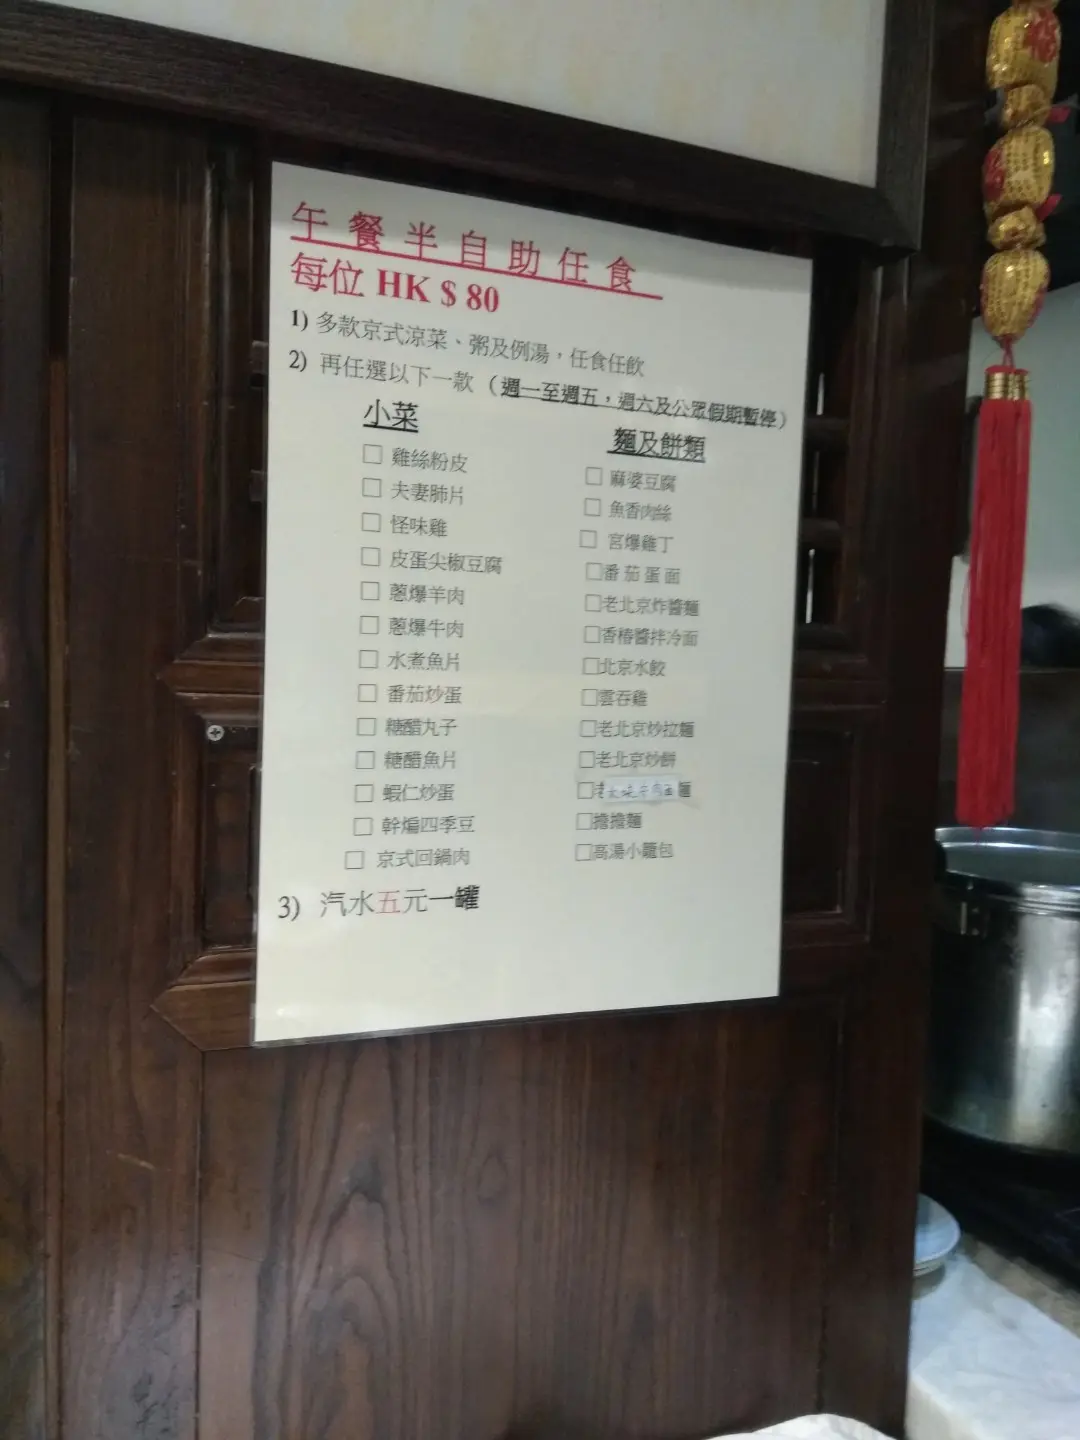 午餐半自助任食
每位 HK $ 80
1) 多款京式涼菜、粥及例湯，任食任飲
2) 再任選以下一款（週一至週五，週六及公眾假期暫停）
小菜
□ 雞絲粉皮
□ 夫妻肺片
□ 怪味雞
□ 皮蛋尖椒豆腐
□ 蔥爆羊肉
□ 蔥爆牛肉
□ 水煮魚片
□ 番茄炒蛋
□ 糖醋丸子
□ 糖醋魚片
□ 蝦仁炒蛋
□ 幹煸四季豆
□ 京式回鍋肉
麵及餅類
□ 麻婆豆腐
□ 魚香肉絲
□ 宮爆雞丁
□番茄蛋面
□老北京炸醬麵
□香椿醬拌冷面
□北京水餃
□雲吞雞
□老北京炒拉麵
□老北京炒餅
□ 麵
□擔擔麵
□高湯小籠包
3) 汽水五元一罐
福